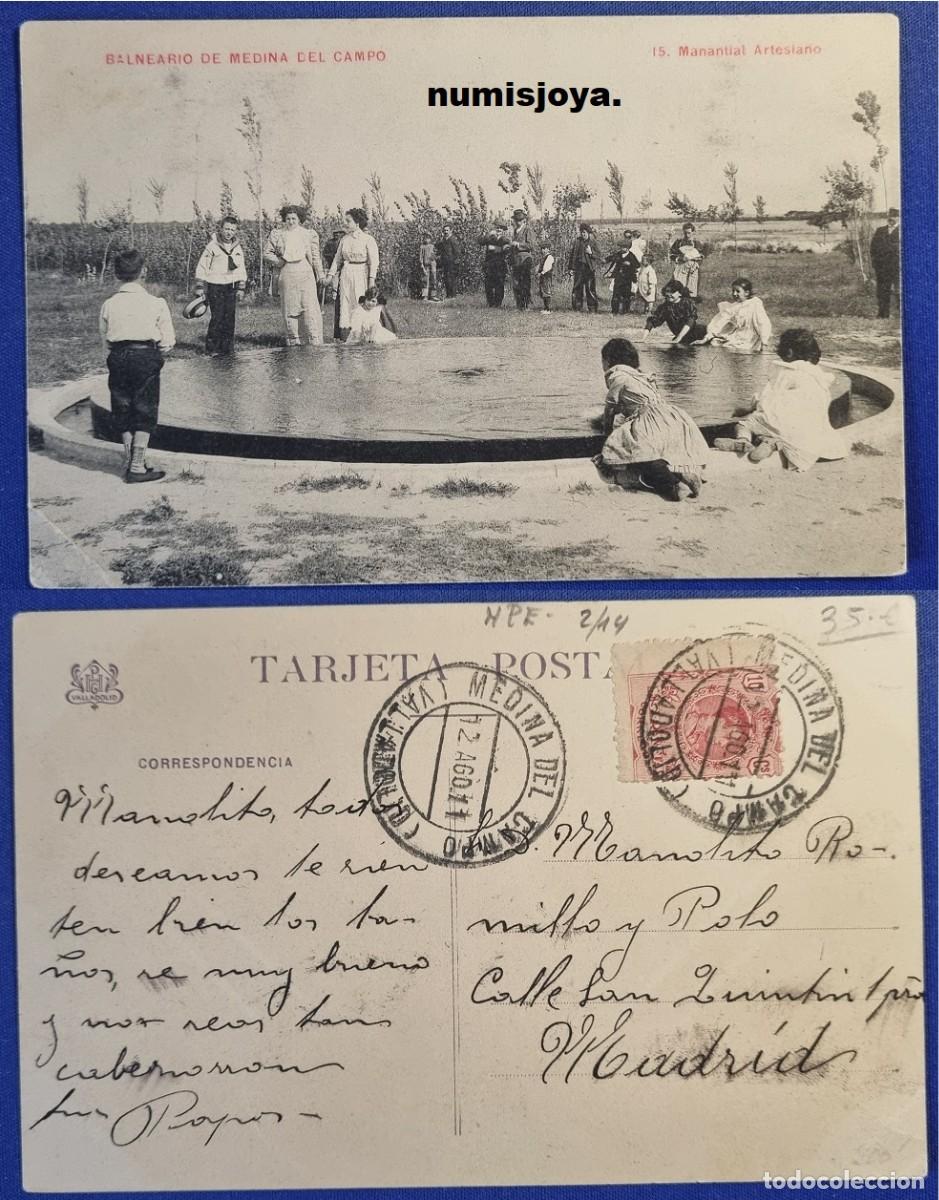 BALNEARIO DE MEDINA DEL CAMPO
15. Manantial Artesiano
numisjoya.
MPE - 2/14
35.-€
TARJETA POSTA
VALLADOLID
CORRESPONDENCIA
MEDINA DEL CAMPO (VALLADOLID)
12 AGO.11
MEDINA DEL CAMPO (VALLADOLID)
AGO.11
10 Cs
Manolito, tod
deseamos te sien
ten bien los ba-
ños, se muy bueno
y nos seas tan
cabezorron
tus Papas -
D. Manolito Ro-
millo y Polo
Calle San Quintin 1 pro
Madrid
todocoleccion